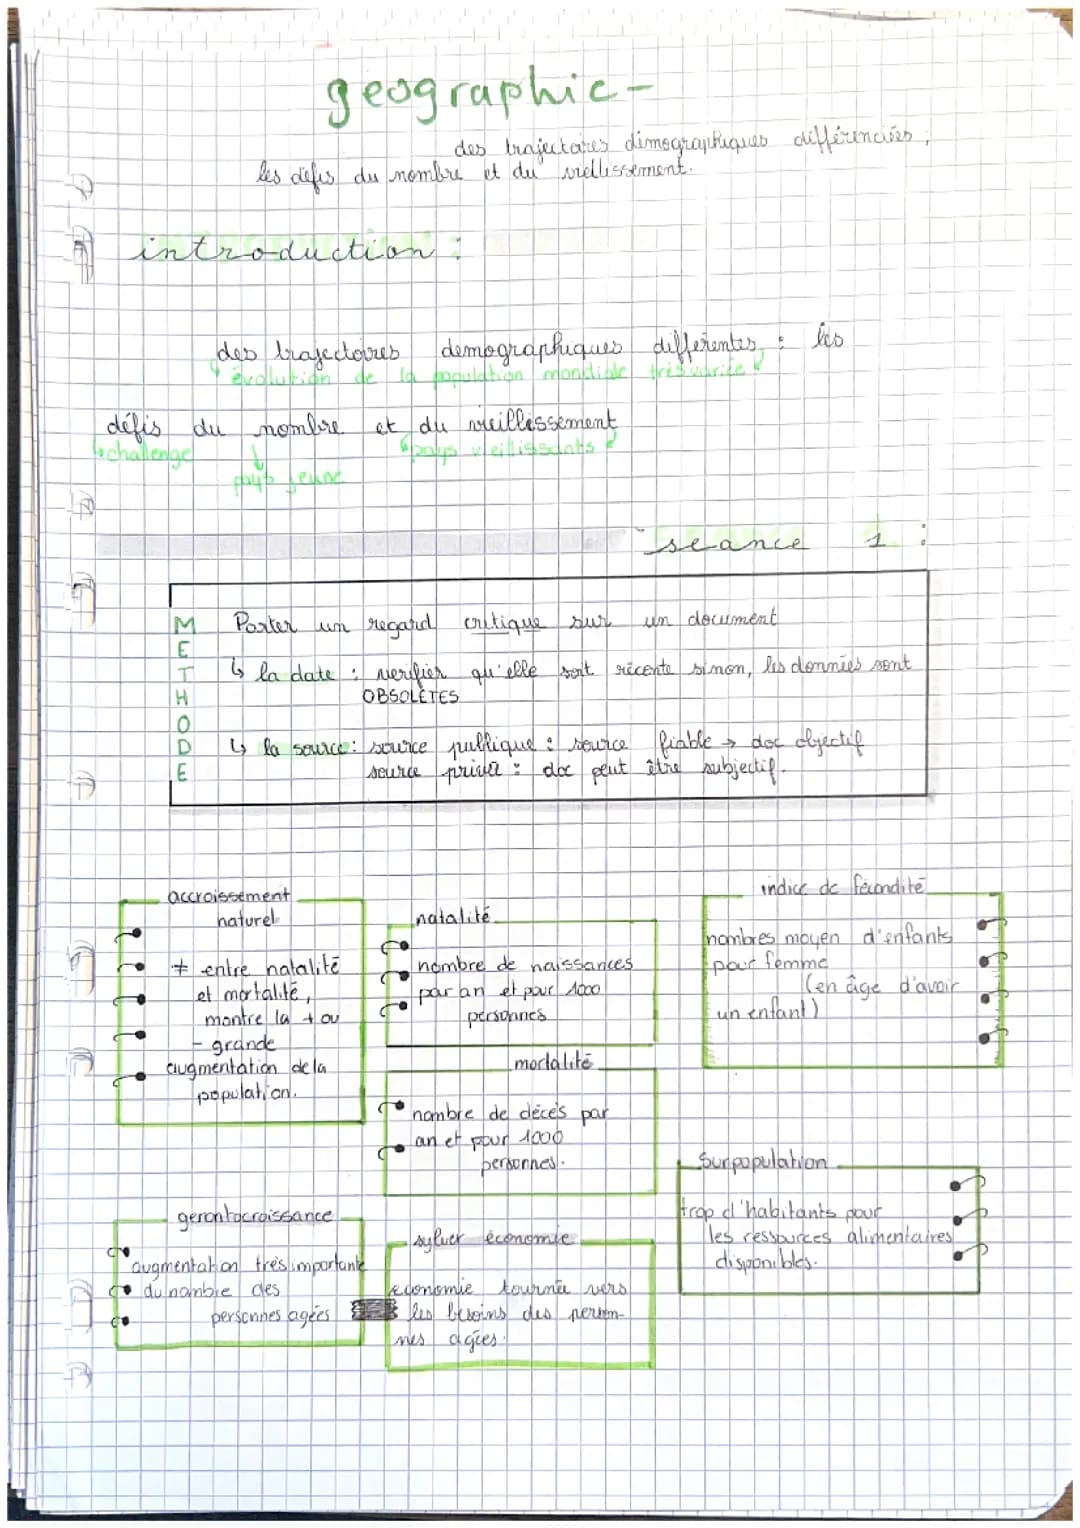 geographie-
des trajectoires démographiques différenciées ;
les défis du nombre et du viellissement.
introduction :
des trajectoires demographiques differentes : les
évolution de la population mondiale très variée
défis du nombre et du vieillissement
challenge
pays vieillissants
pays jeune
seance 1 :
METHODE
Porter un regard critique sur un document
↳ la date : verifier qu'elle soit récente sinon, les données sont
OBSOLÈTES
↳ la source : source publique : source fiable → doc objectif
source privée : doc peut être subjectif.
accroissement
naturel
≠ entre natalité
et mortalité,
montre la + ou
- grande
augmentation de la
population.
natalité
nombre de naissances
par an et pour 1000
personnes
indice de fécondité
nombres moyen d'enfants
pour femme
(en âge d'avoir
un enfant)
mortalité
nombre de décès par
an et pour 1000
personnes.
Surpopulation
trop d'habitants pour
les ressources alimentaires
disponibles.
gerontocroissance
augmentation très importante
du nombre des
personnes agées
sylver économie
economie tournée vers
les besoins des person-
nes agées.